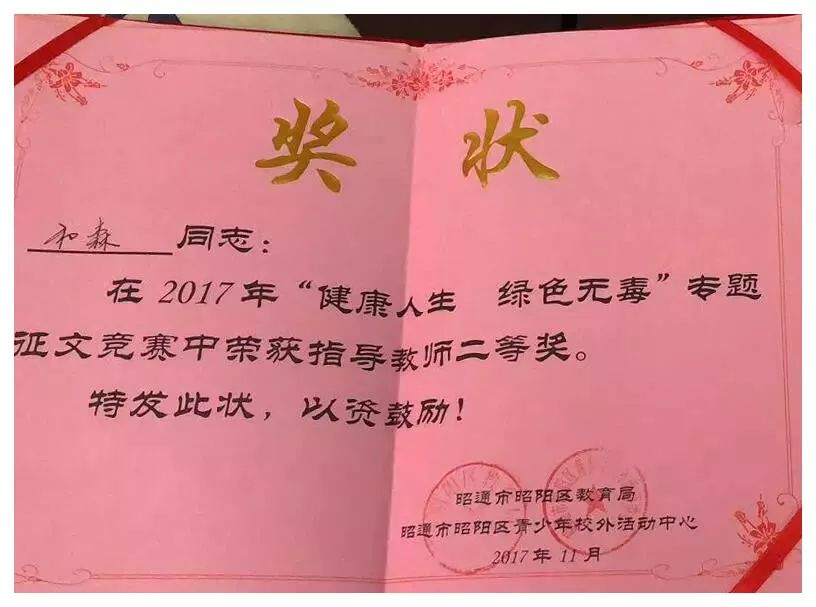 奖状
和森 同志：
在 2017 年“健康人生 绿色无毒”专题
征文竞赛中荣获指导教师二等奖。
特发此状，以资鼓励！
昭通市昭阳区教育局
昭通市昭阳区青少年校外活动中心
2017 年 11 月